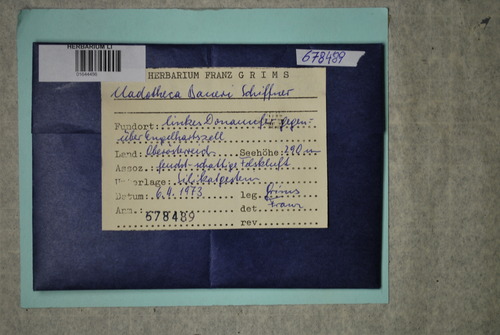 HERBARIUM LI
678489
HERBARIUM FRANZ GRIMS
Madotheca Baueri Schiffner
Fundort: linkes Donauufer gegen-
über Engelhartszell
Land: Oberösterreich Seehöhe: 290 m
Assoz.: feucht-schattige Felskluft
Unterlage: Silikatgestein
Datum: 6.4.1973 leg. Grims
Anm.: 678489 det. Franz
rev.